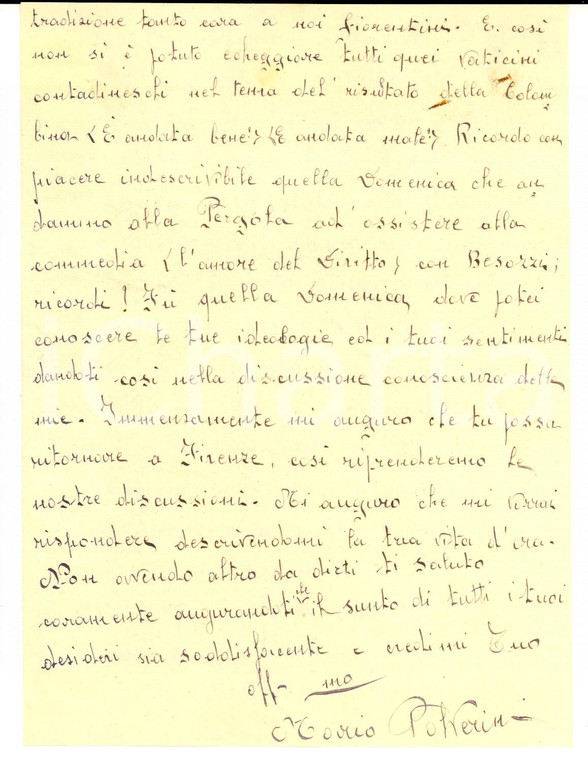 tradizione tanto cara a noi fiorentini. E così
non si è potuto echeggiare tutti quei vaticini
contadineschi nel tema del risultato della Colom
bina. (È andata bene?) (È andata male?) Ricordo con
piacere indescrivibile quella Domenica che an
dammo alla Pergola ad'assistere alla
commedia (l'amore del Diritto) con Besozzi;
ricordi! Fù quella Domenica, dove potei
conoscere le tue ideologie ed i tuoi sentimenti
dandoti così nella discussione conoscienza delle
mie. Immenzamente mi auguro che tu possa
ritornare a Firenze, così riprenderemo le
nostre discussioni. Mi auguro che mi vorrai
rispondere descrivendomi la tua vita d'ora.
Non avendo altro da dirti ti saluto
caramente augurandoti che il sunto di tutti i tuoi
desideri sia soddisfacente e credimi Tuo
aff mo
Mario Polverini